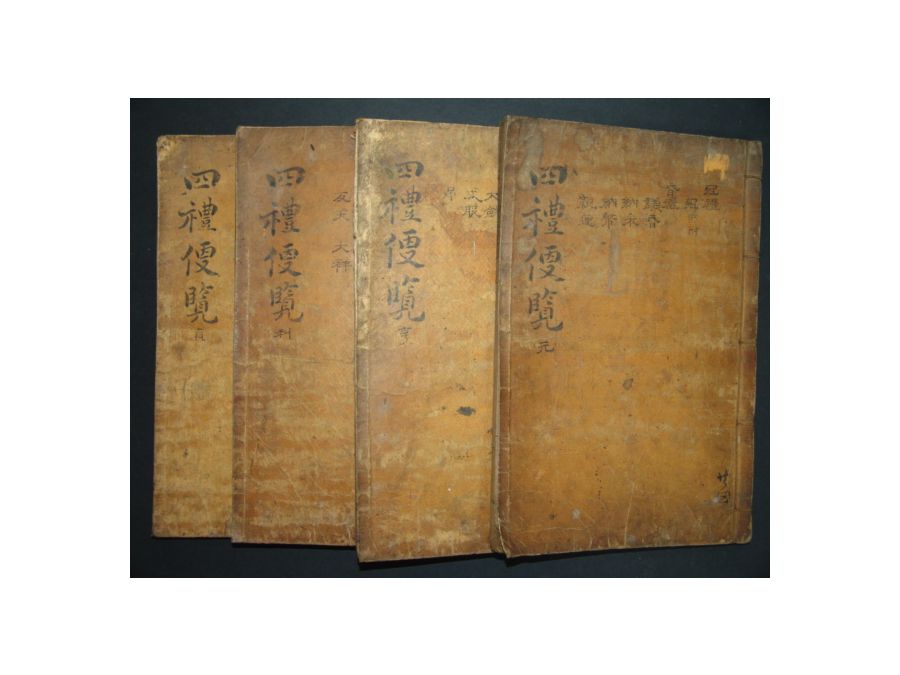 冠禮
昏禮
議昏
納采
納幣
親迎
四禮便覽 元
共四
成服
四禮便覽 亨
大祥
四禮便覽 利
四禮便覽 貞